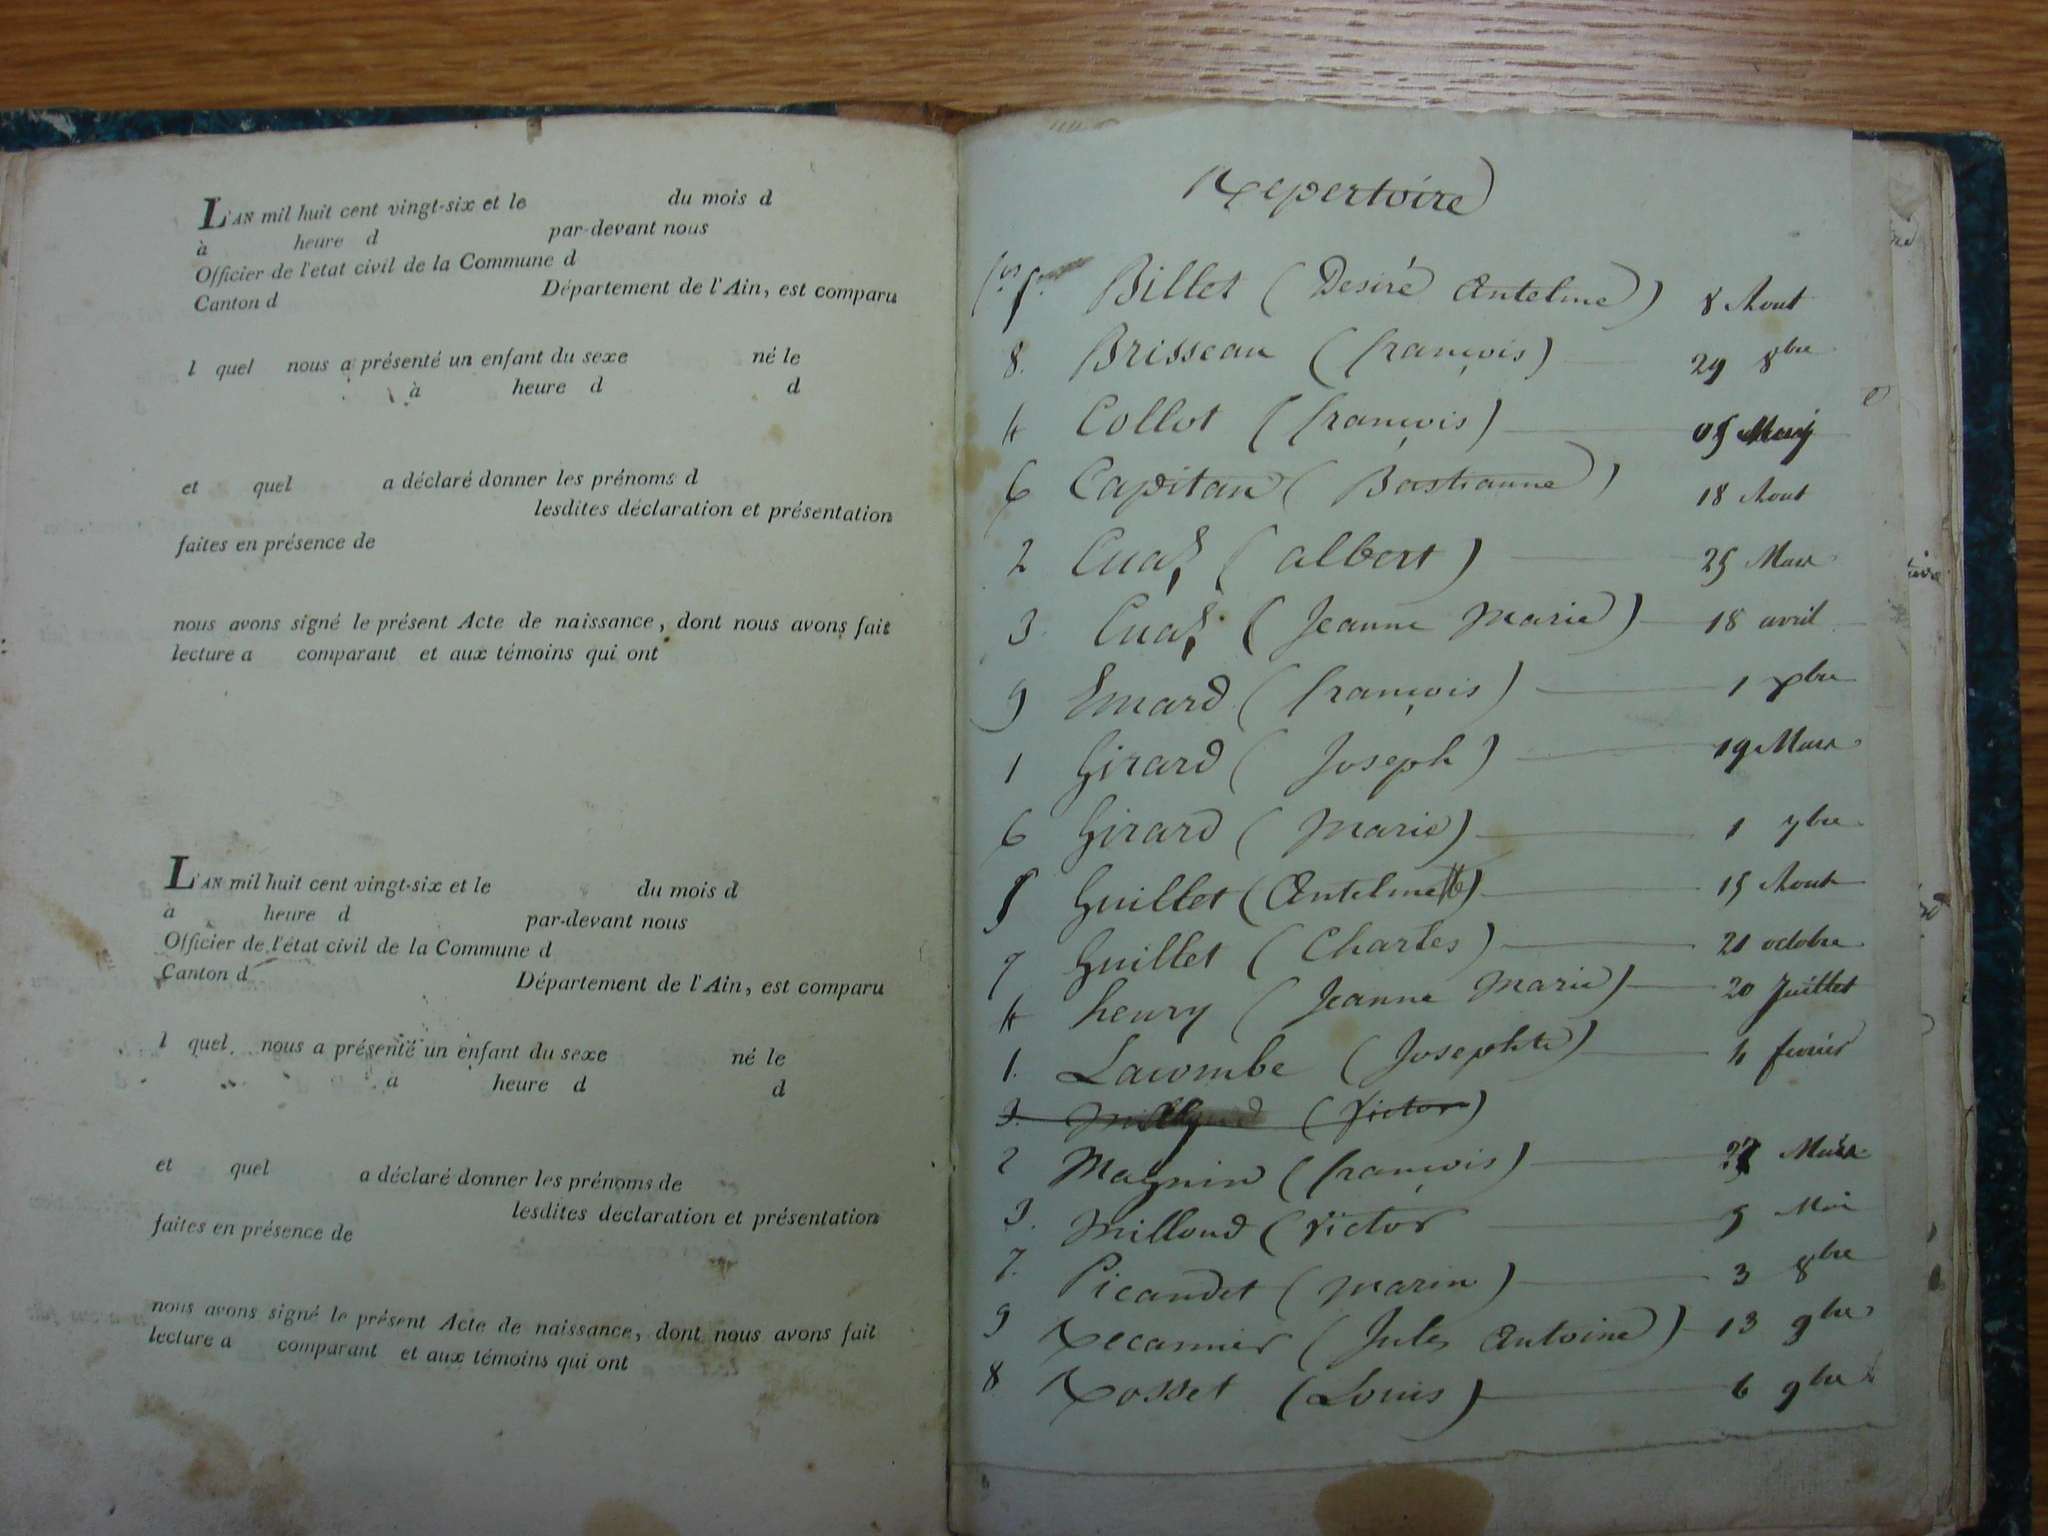 L'AN mil huit cent vingt-six et le du mois d
à heure d par-devant nous
Officier de l'etat civil de la Commune d
Canton d Département de l'Ain, est comparu
l quel nous a présenté un enfant du sexe né le
à heure d d
et quel a déclaré donner les prénoms d
lesdites déclaration et présentation
faites en présence de
nous avons signé le présent Acte de naissance, dont nous avons fait
lecture a comparant et aux témoins qui ont
L'AN mil huit cent vingt-six et le du mois d
à heure d par-devant nous
Officier de l'état civil de la Commune d
Canton d Département de l'Ain, est comparu
l quel nous a présenté un enfant du sexe né le
à heure d d
et quel a déclaré donner les prénoms de
lesdites déclaration et présentation
faites en présence de
nous avons signé le présent Acte de naissance, dont nous avons fait
lecture a comparant et aux témoins qui ont
Repertoire
fos 5. Billet (Desiré Antelme) 8 Aout
8. Brisseau (françois) 29 8bre
4 Collot (françois)
6 Capitan (Bastianne) 18 Aout
2 Cuaz (albert) 25 Mars
3 Cuaz (Jeanne Marie) 18 avril
9 Emard (françois) 1 xbre
1 Girard (Joseph) 19 Mars
6 Girard (Marie) 1 7bre
5 Guillet (Antelme) 15 Aout
7 Guillet (Charles) 21 octobre
4 henry (Jeanne Marie) 20 Juillet
1. Lacombe (Josephte) 4 fevrier
3. (Victor)
2 Magnin (françois) Mars
3. Milloud (Victor 5 Mai
7. Picaudet (Marin) 3 8bre
9 Recamier (Jules Antoine) 13 9bre
8 Rosset (Louis) 6 9bre